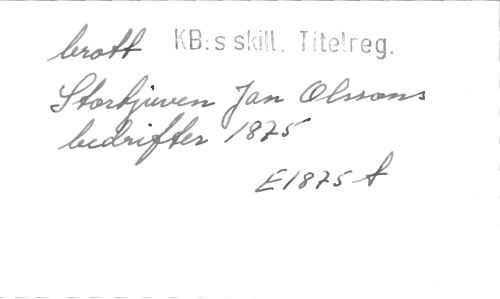 brott KB:s skill. Titelreg.
Stortjuven Jan Olssons
bedrifter 1875
E1875 f